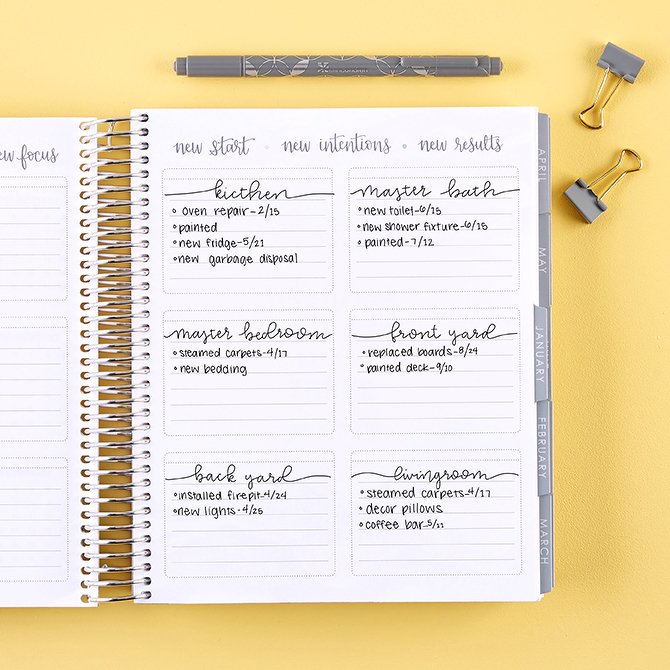 ew focus
new start • new intentions • new results
kicthen
oven repair-2/15
painted
new fridge-5/21
new garbage disposal
master bath
new toilet-6/15
new shower fixture-6/15
painted-7/12
master bedroom
steamed carpets-4/17
new bedding
front yard
replaced boards-8/24
painted deck-9/10
back yard
installed firepit-4/24
new lights-4/25
livingroom
steamed carpets-4/17
decor pillows
coffee bar-5/21
APRIL
MAY
JANUARY
FEBRUARY
MARCH